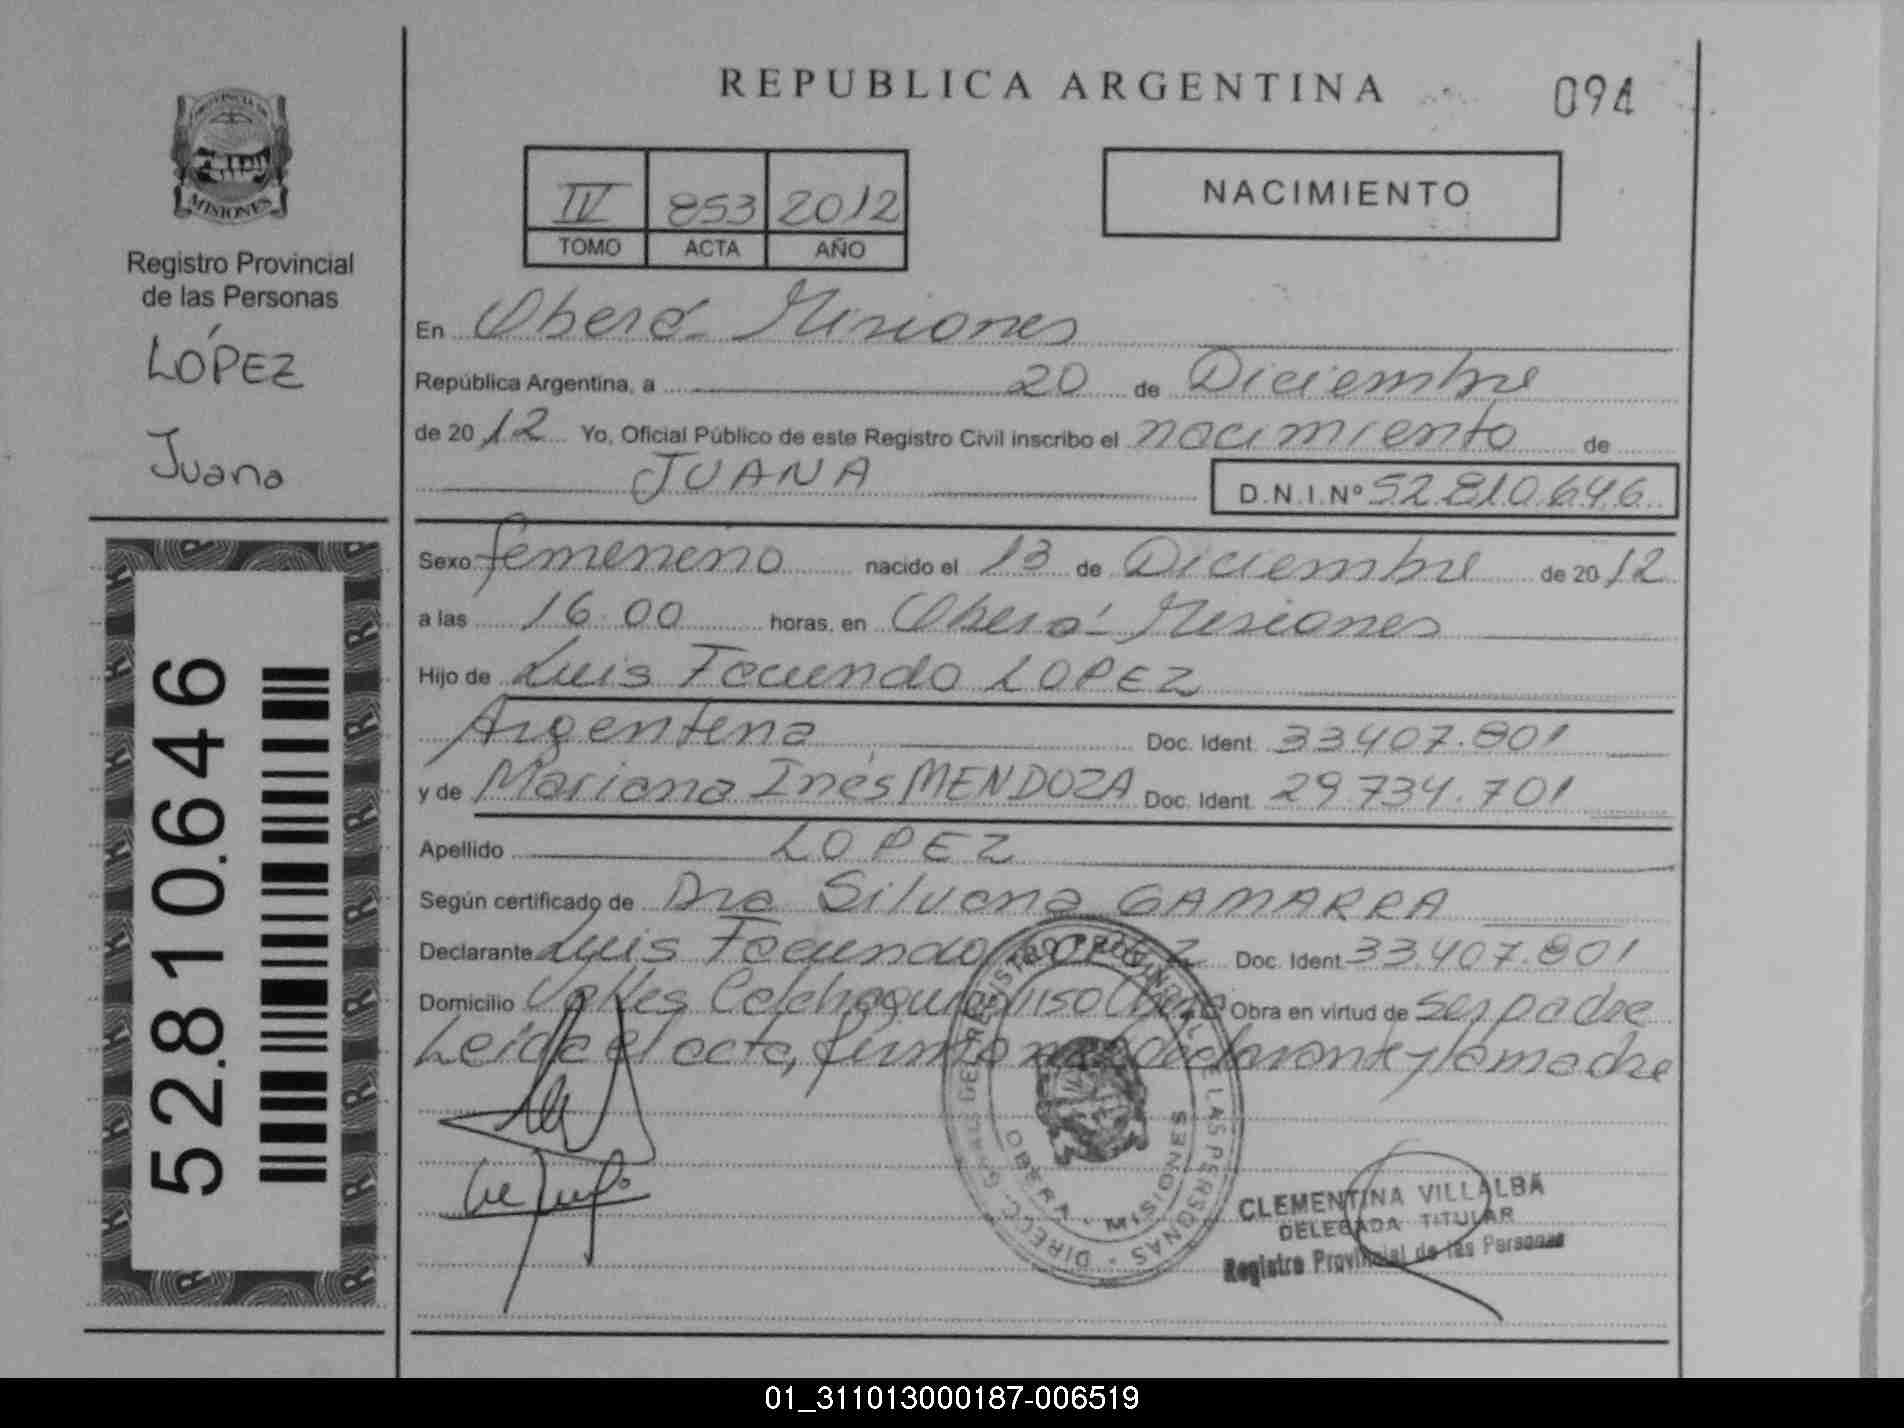 REPUBLICA ARGENTINA
094
PROVINCIA DE
MISIONES
Registro Provincial
de las Personas
LÓPEZ
Juana
52.810.646
IV 853 2012
TOMO ACTA AÑO
NACIMIENTO
En Oberá - Misiones
República Argentina, a 20 de Diciembre
de 2012 Yo, Oficial Público de este Registro Civil inscribo el nacimiento de
JUANA D.N.I.Nº 52.810.646
Sexo femenino nacido el 13 de Diciembre de 2012
a las 16.00 horas, en Oberá - Misiones
Hijo de Luis Facundo LOPEZ
Argentina Doc. Ident. 33.407.801
y de Mariana Inés MENDOZA Doc. Ident. 29.734.701
Apellido LOPEZ
Según certificado de Dra Silvana GAMARRA
Declarante Luis Facundo LOPEZ Doc. Ident. 33.407.801
Domicilio Valles Calchaquíes 1150 Oberá Obra en virtud de ser padre
Leída el acta, firman el declarante y la madre
REGISTRO PROVINCIAL DE LAS PERSONAS - DIRECC. GRAL DEL
OBERA - MISIONES
CLEMENTINA VILLALBA
DELEGADA TITULAR
Registro Provincial de las Personas
01_311013000187-006519